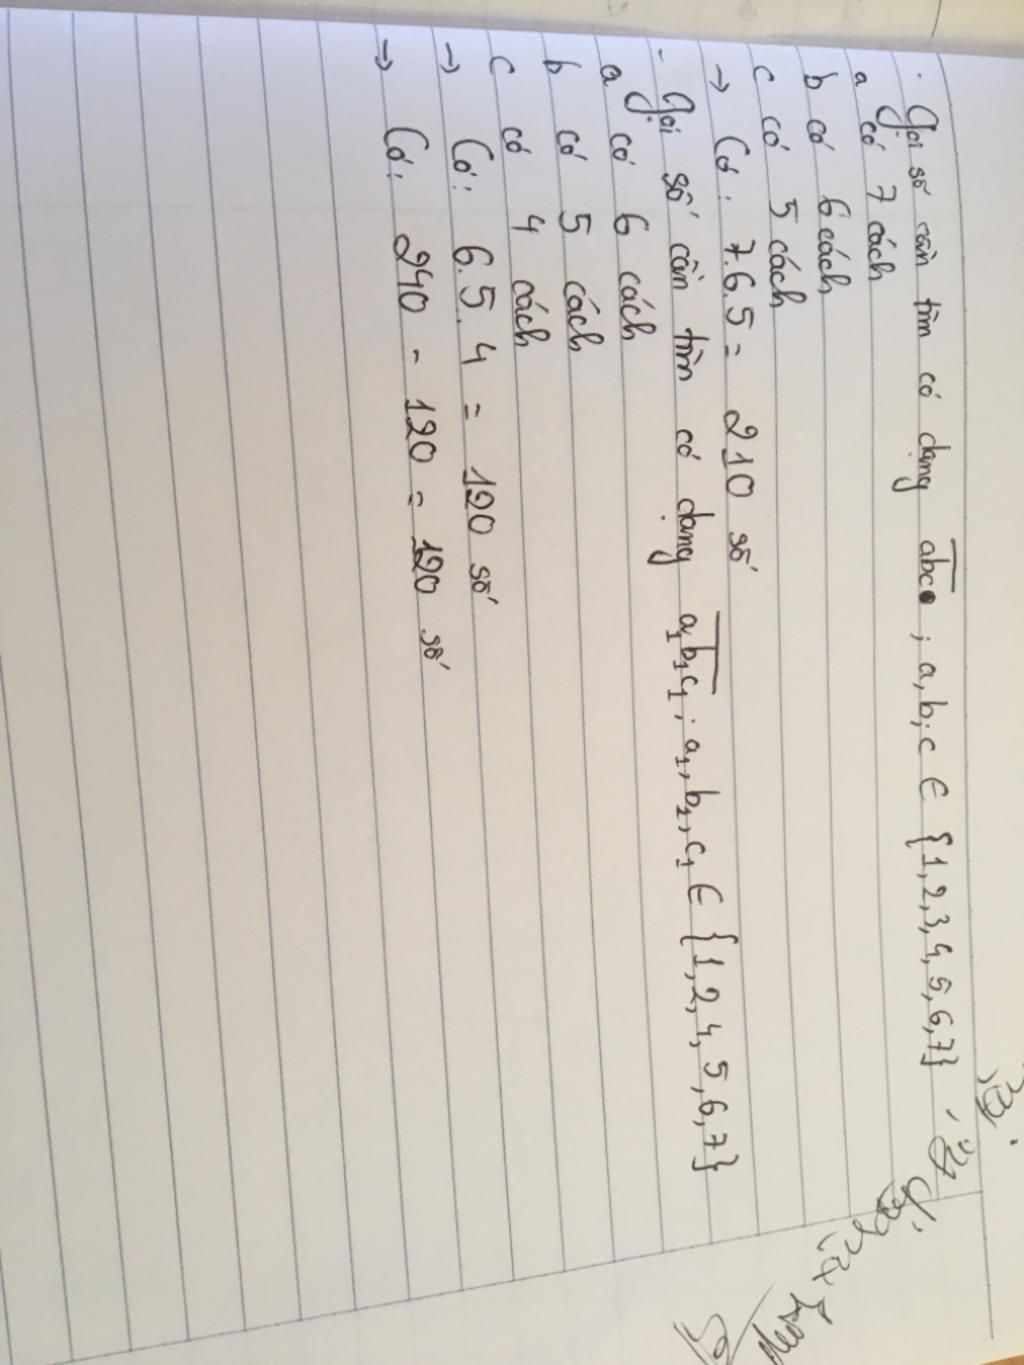 - Gọi số cần tìm có dạng abc ; a, b, c ∈ {1, 2, 3, 4, 5, 6, 7}
a có 7 cách
b có 6 cách
c có 5 cách
→ Có : 7.6.5 = 210 số
- Gọi số cần tìm có dạng a₁b₁c₁ ; a₁, b₁, c₁ ∈ {1, 2, 4, 5, 6, 7}
a có 6 cách
b có 5 cách
c có 4 cách
→ Có : 6.5.4 = 120 số
→ Có : 240 - 120 = 120 số